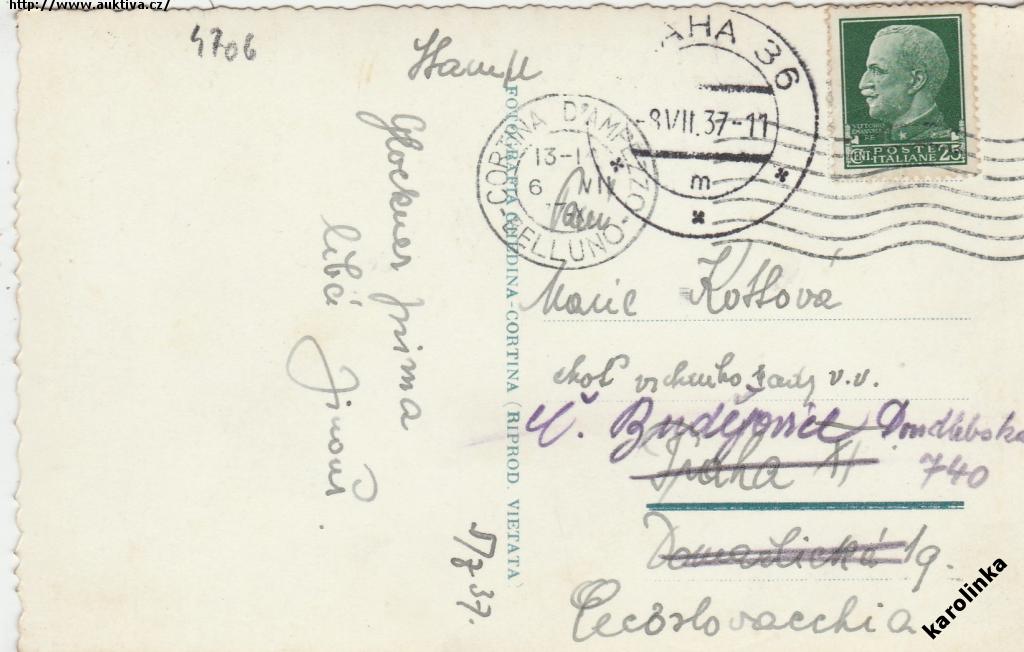 http://www.auktiva.cz/
4706
Glockner prima
líbá
Jinouš.
5/7 37.
FOTOGRAFIA GHEDINA-CORTINA (RIPROD. VIETATA)
CORTINA D'AMPEZZO
13-1
6 VII
-BELLUNO-
AHA 36
-8VII.37-11
m
VITTORIO EMANUELE
CENT. POSTE ITALIANE 25
Marie Kotlová
rady v.v.
Č. Budějovice Doudlebská
740
Praha II
Domažlická 19.
Cecoslovacchia
karolinka